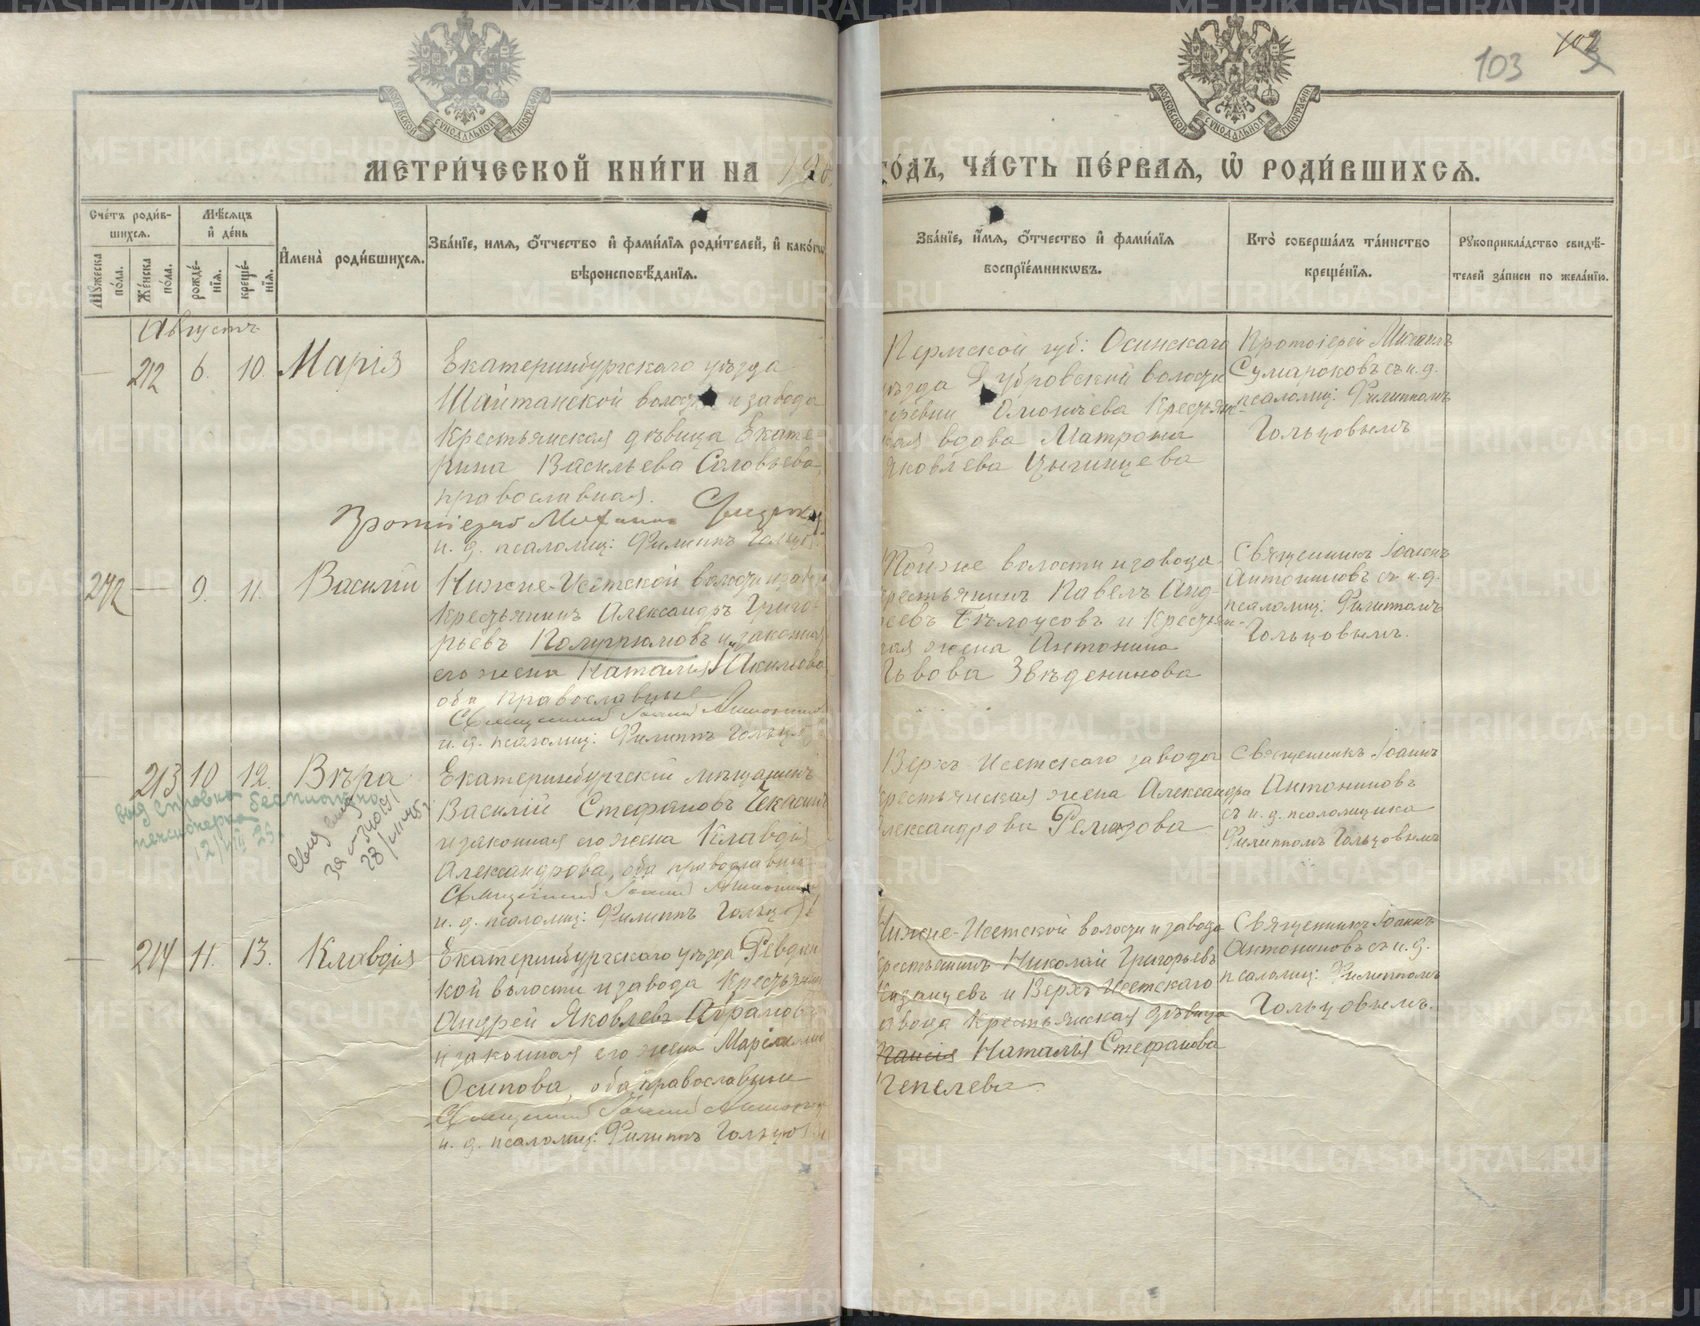 103
МОСКОВСКОЙ СѴНОДАЛЬНОЙ ТИПОГРАФІИ
МОСКОВСКОЙ СѴНОДАЛЬНОЙ ТИПОГРАФІИ
МЕТРИ́ЧЕСКОЙ КНИ́ГИ НА
ГО́ДЪ, ЧА́СТЬ ПЕ́РВАЯ, Ѡ҆ РОДИ́ВШИХСЯ.
Сче́тъ роди́в-
шихся.
Мꙋ́жеска по́ла.
Же́нска по́ла.
Мѣ́сяцъ
и҆ де́нь
рожде́-
нїя.
креще́-
нїя.
И҆мена̀ роди́вшихся.
Зва́нїе, имя, ѻ҆́тчество и҆ фами́лїя роди́телей, и҆ како́гѡ
вѣроисповѣ́данїя.
Зва́нїе, и҆́мя, ѻ҆́тчество и҆ фами́лїя
воспрїе́мникѡвъ.
Кто̀ соверша́лъ та́инство
креще́нїя.
Рꙋкоприкла́дство свидѣ́-
телей за́писи по жела́нїю.
Августъ
— 212 6. 10. Марія
Екатеринбургскаго уѣзда
Шайтанской волости и завода
крестьянская дѣвица Екате-
рина Васильева Соловьева,
православная.
Протоіерей Михаилъ
и. д. псаломщ: Филиппъ Гольцов
Пермской губ: Осинскаго
уѣзда Дубровской волости
деревни крестьян-
ская вдова Матрона
Яковлева
Протоіерей Михаилъ
Сумароковъ съ и. д.
псаломщ: Филиппомъ
Гольцовымъ
212 — 9. 11. Василій
Нижне-Исетской волости и завода
крестьянинъ Александръ Григо-
рьевъ и законная
его жена Наталія Акилова
оба православные
Священникъ Іоаннъ Антониновъ
и. д. псаломщ: Филиппъ Гольцов
Той-же волости и завода
крестьянинъ Павелъ Анд-
реевъ Бѣлоусовъ и крестьян-
ская жена Антонина
Львова Звѣденинова
Священникъ Іоаннъ
Антониновъ съ и. д.
псаломщ: Филиппомъ
Гольцовымъ.
— 213 10 12. Вѣра
Екатеринбургскій мѣщанинъ
Василій Стефановъ
и законная его жена Клавдія
Александрова, оба православные
Священникъ Іоаннъ Антониновъ
и. д. псаломщ: Филиппъ Гольцов
Верхъ Исетскаго завода
крестьянская жена Александра
Александрова
Священникъ Іоаннъ
Антониновъ
съ и. д. псаломщика
Филиппомъ Гольцовымъ
справка бесплатно
пенсионерка
— 214 11. 13. Клавдія
Екатеринбургскаго уѣзда Ревдин
кой волости и завода крестьянинъ
Андрей Яковлевъ Абрамовъ
и законная его жена Марія
Осипова, оба православные
Священникъ Іоаннъ Антониновъ
и. д. псаломщ: Филиппъ Гольцов
Нижне-Исетской волости и завода
крестьянинъ Николай Григорьевъ
Казанцевъ и Верхъ Исетскаго
завода крестьянская дѣвица
Наталія Стефанова
Пепелева
Священникъ Іоаннъ
Антониновъ съ и. д.
псаломщ: Филиппомъ
Гольцовымъ.
METRIKI.GASO-URAL.RU